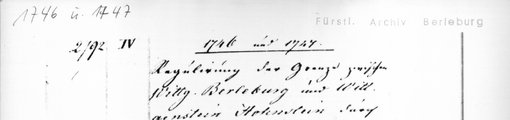 1746 u. 1747
Fürstl. Archiv Berleburg
2/92 IV 1746 und 1747.
Regulirung der Grenze zwischen
Wittg. Berleburg und Witt
genstein Hohnstein durch